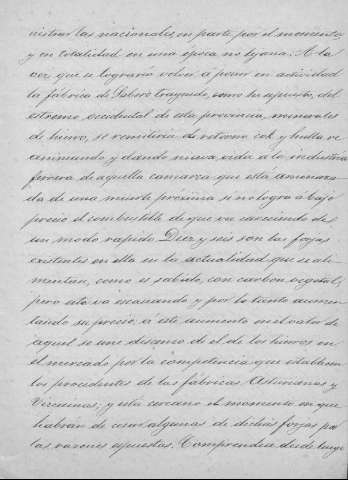 nistrar las nacionales en parte por el momento
y en totalidad en una época no lejana. A la
vez que se lograria volver á poner en actividad
la fábrica de Sabero trayendo, como he espuesto, del
estremo occidental de esta provincia, minerales
de hierro, se remitiria de retorno cok y hulla re
animando y dando nueva vida á la industria
ferrera de aquella comarca que está amenaza-
da de una muerte próxima si no logra á bajo
precio el combustible de que va careciendo de
un modo rapido. Diez y seis son las forjas
existentes en ella en la actualidad que se ali-
mentan, como es sabido, con carbon vegetal;
pero este va escaseando y por lo tanto aumen-
tando su precio; á este aumento en el valor de
aquel se une descenso de el de los hierros en
el mercado por la competencia que establecen
los procedentes de las fábricas Asturianas y
Vizcainas; y está cercano el momento en que
habrán de cesar algunas de dichas forjas por
las razones espuestas. Comprendia desde luego